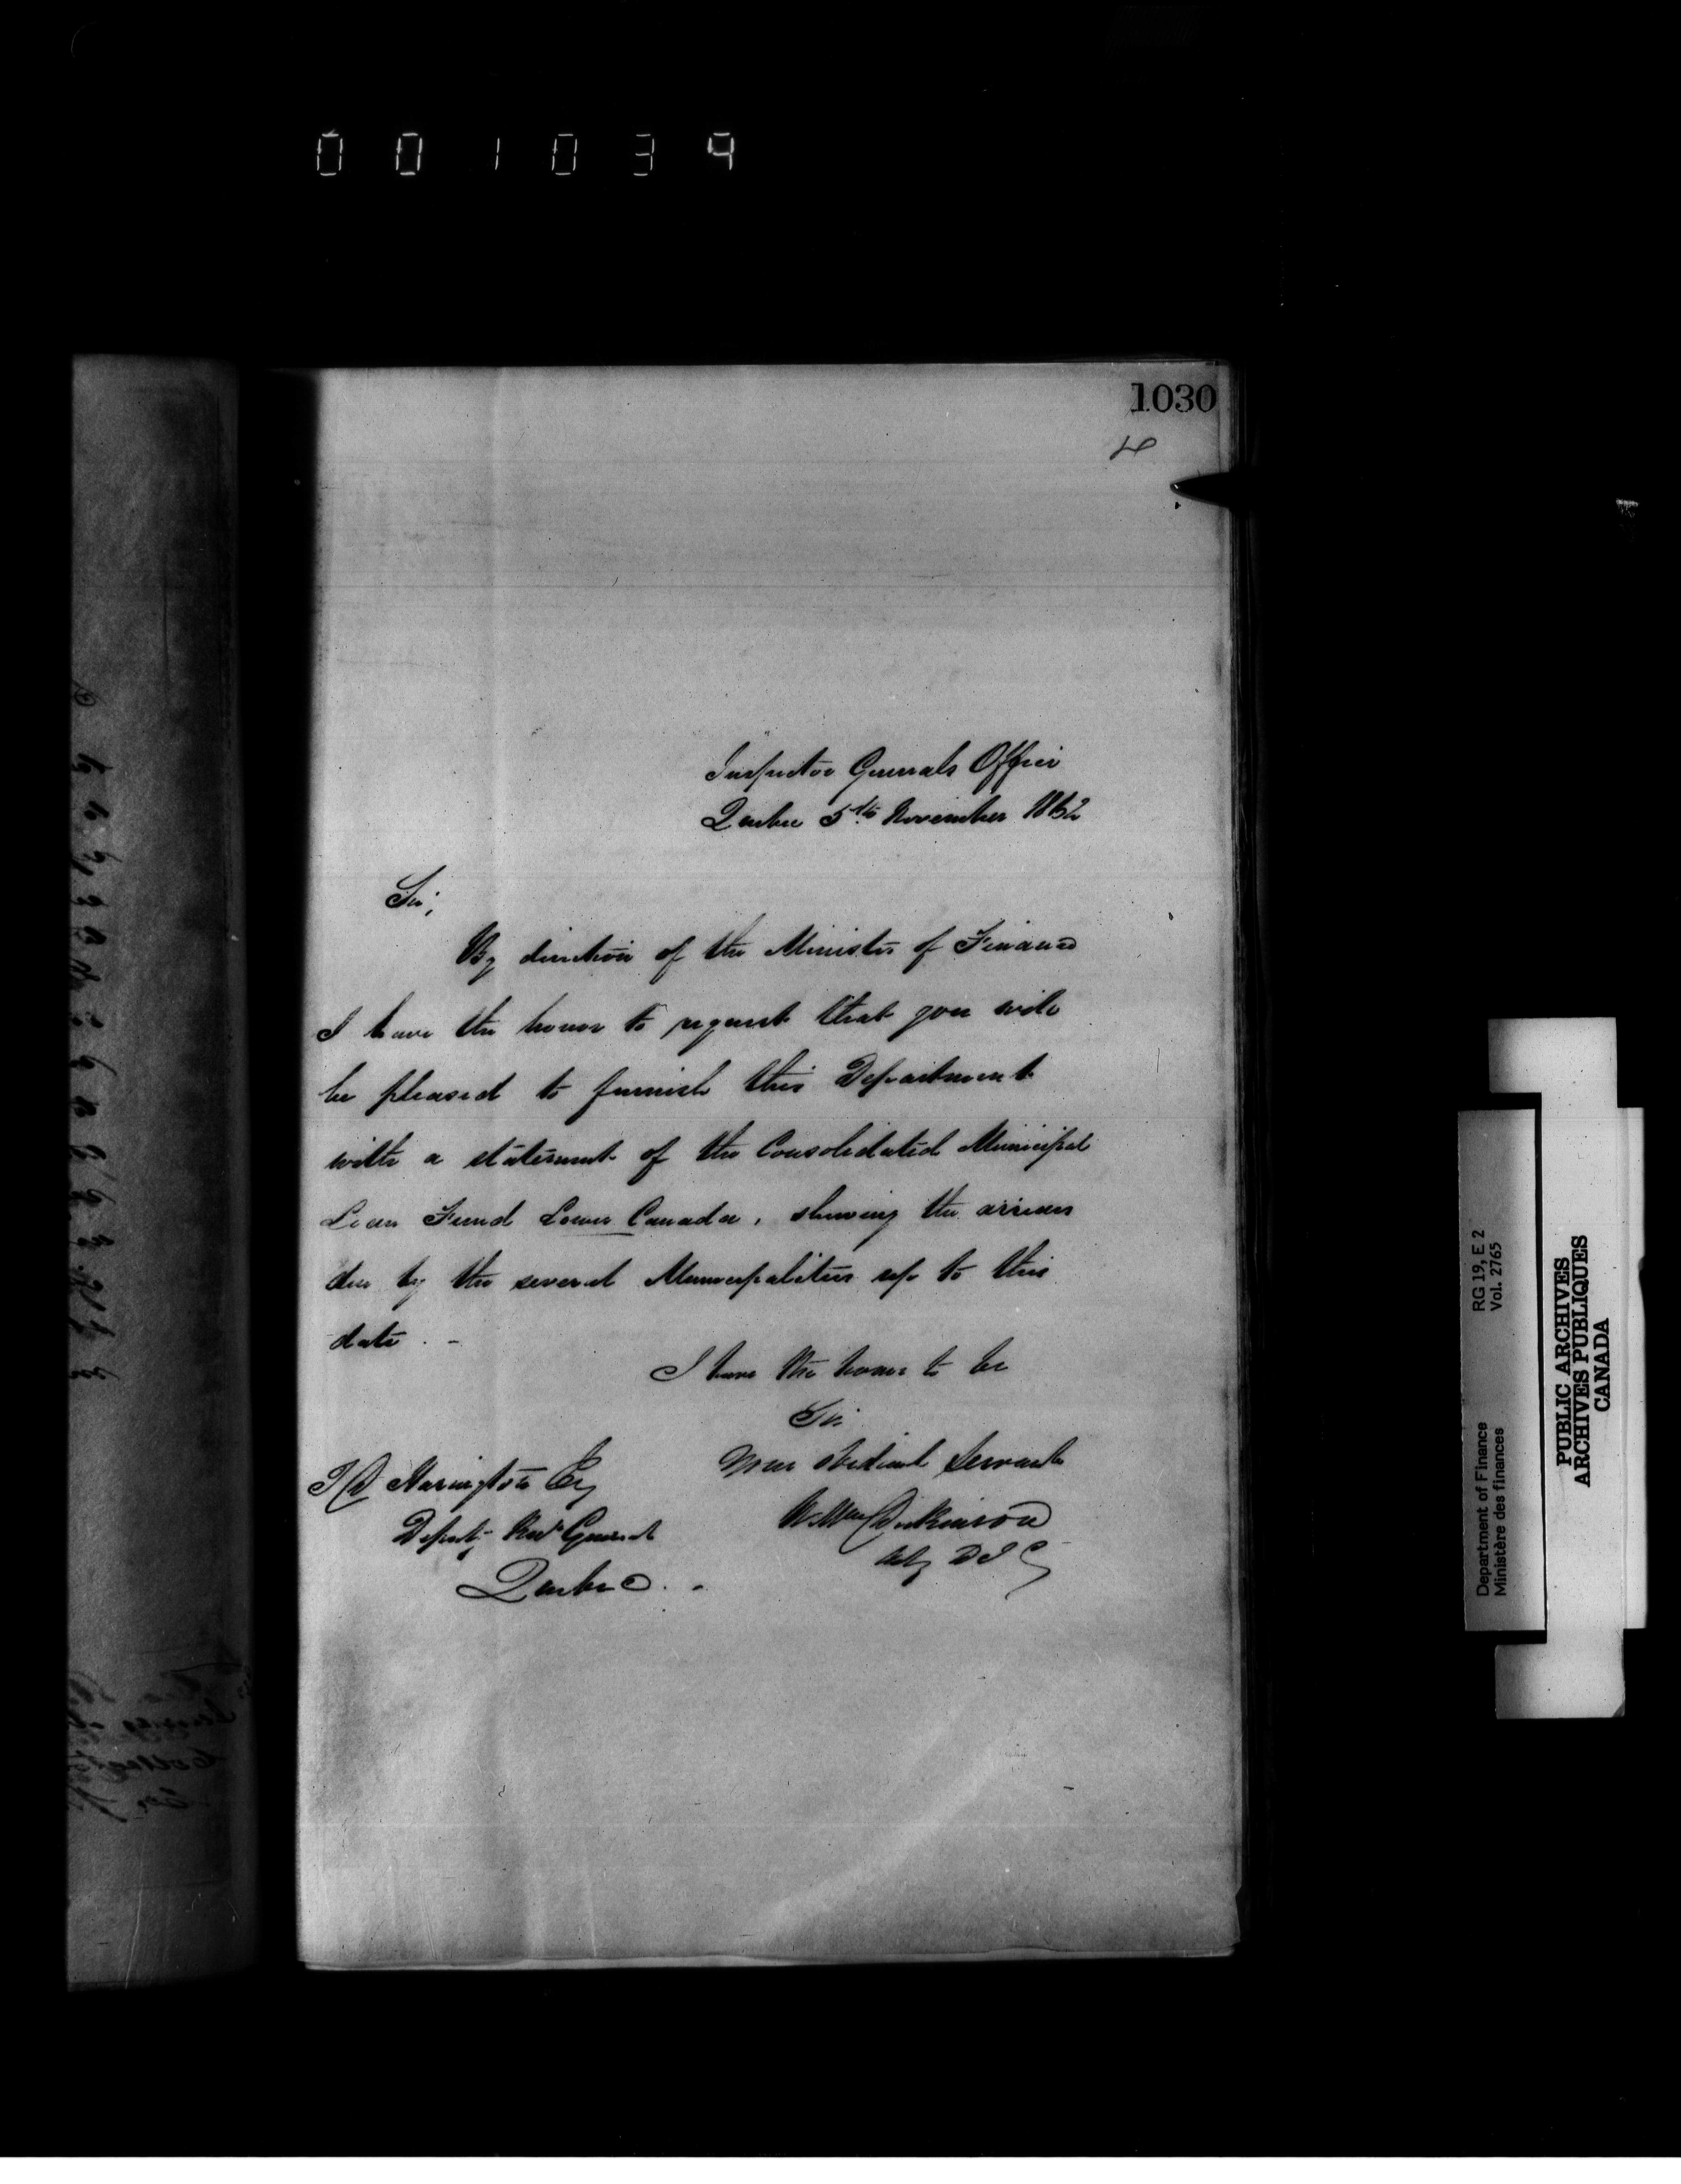 001034
1030
Inspector Generals Office
Quebec 5th November 1862
Sir,
By direction of the Minister of Finance
I have the honor to request that you will
be pleased to furnish this Department
with a statement of the Consolidated Municipal
Loan Fund Lower Canada, shewing the arrears
due by the several Municipalities up to this
date. -
I have the honor to be
Sir
Your obedient Servant
T D Harington Esq
Wm Dickinson
Deputy Recr General
Actg D I G
Quebec. -
Department of Finance RG 19, E 2
Ministère des finances Vol. 2765
PUBLIC ARCHIVES
ARCHIVES PUBLIQUES
CANADA